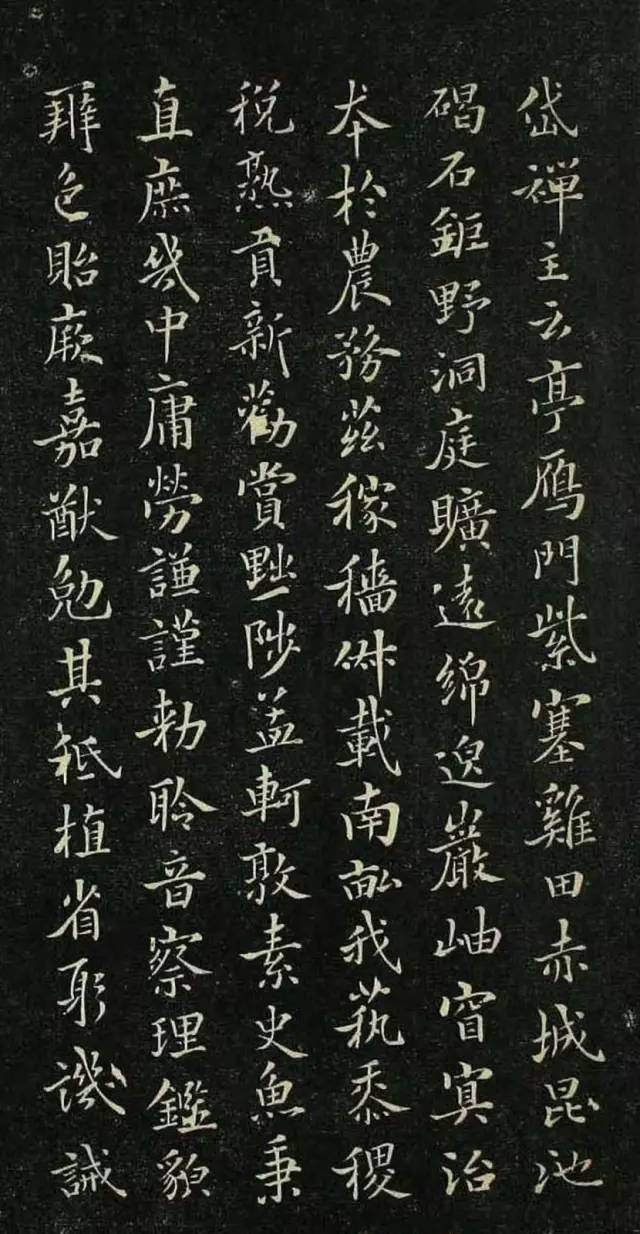 岱禪主云亭鴈門紫塞雞田赤城昆池
碣石鉅野洞庭曠遠綿邈巖岫窅冥治
本於農務茲稼穡俶載南畝我藝黍稷
稅熟貢新勸賞黜陟孟軻敦素史魚秉
直庶幾中庸勞謙謹勑聆音察理鑑貌
辨色貽厥嘉猷勉其祗植省躬譏誡